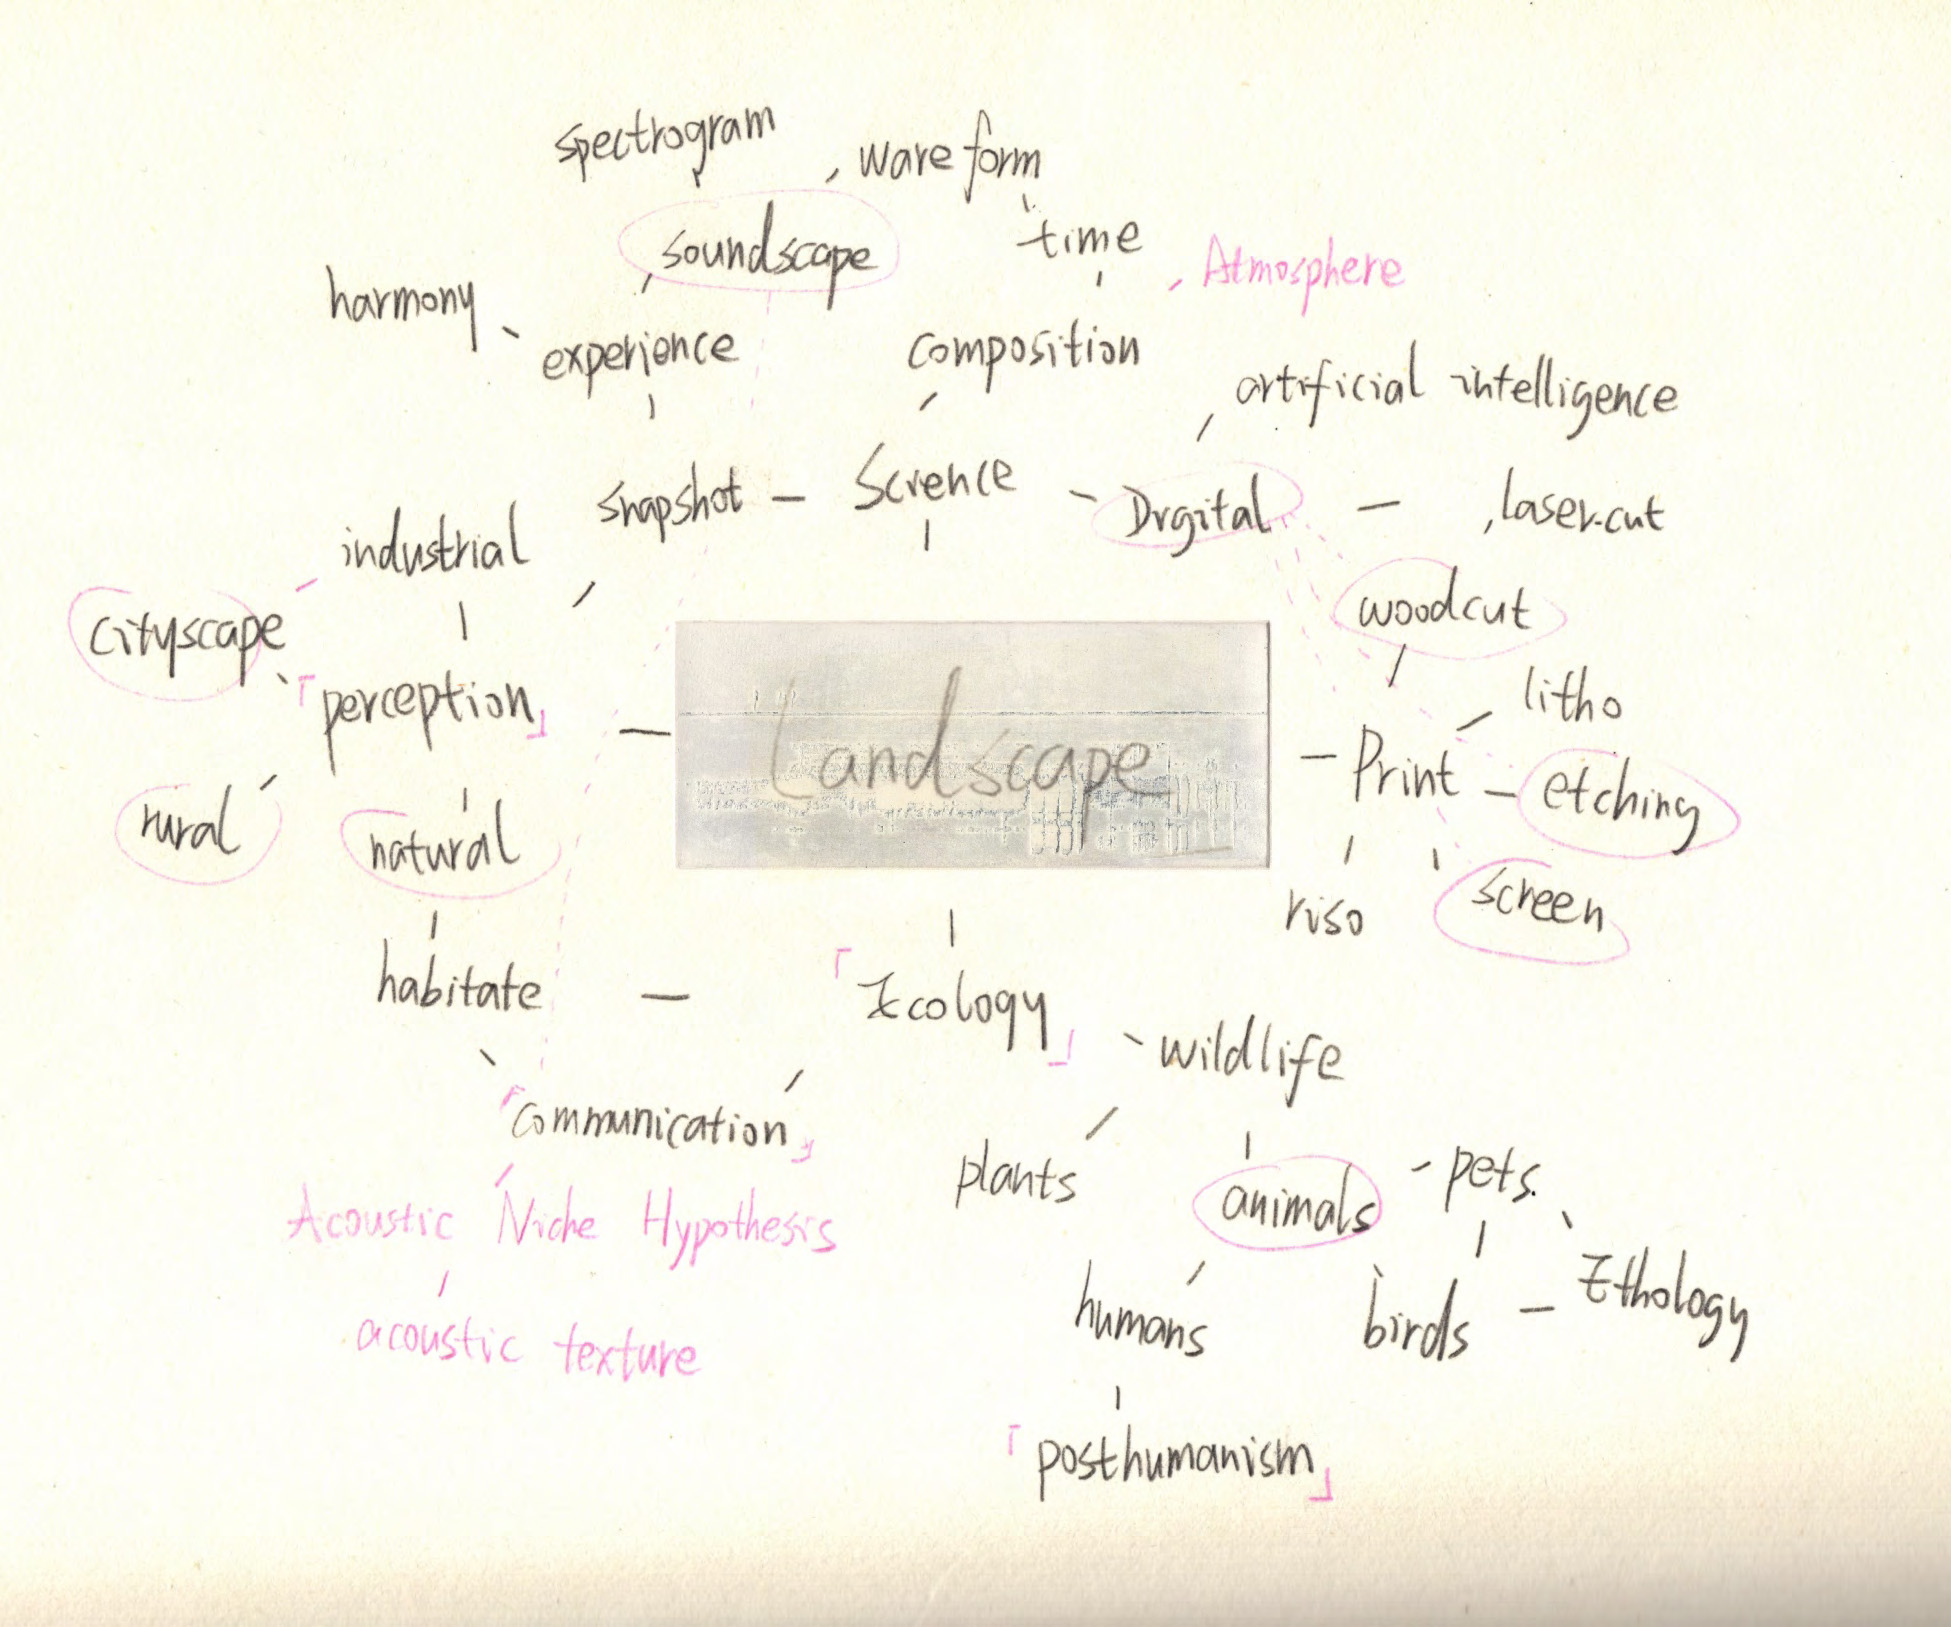 spectrogram
wareform
soundscape
time
Atmosphere
harmony
experience
composition
artificial intelligence
snapshot
Scrence
Drgital
laser-cut
industrial
cityscape
woodcut
「perception」
litho
Landscape
Print
etching
rural
natural
screen
riso
habitate
「Ecology」
wildlife
「communication」
plants
animals
pets.
Acoustic Niche Hypothesis
humans
birds
Ethology
acoustic texture
「posthumanism」